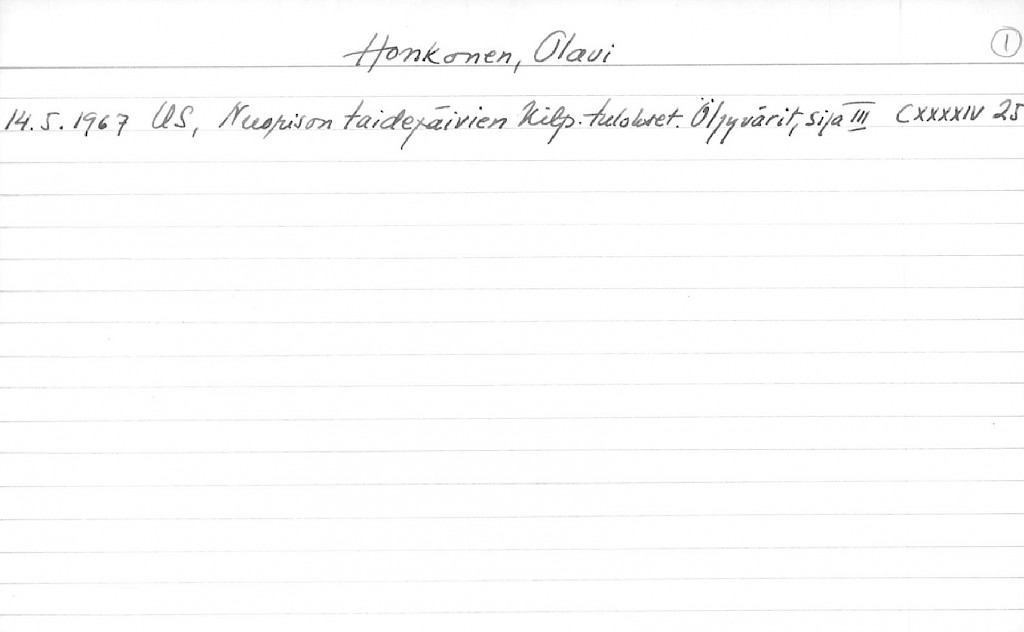 Honkonen, Olavi
1
14.5.1967 US, Nuopison taidepäivien kilp. tulokset. Öljyvärit, sija III CXXXXIV 25